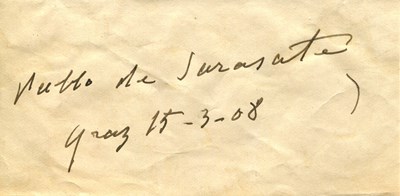 Pablo de Sarasate
Graz 15-3-08